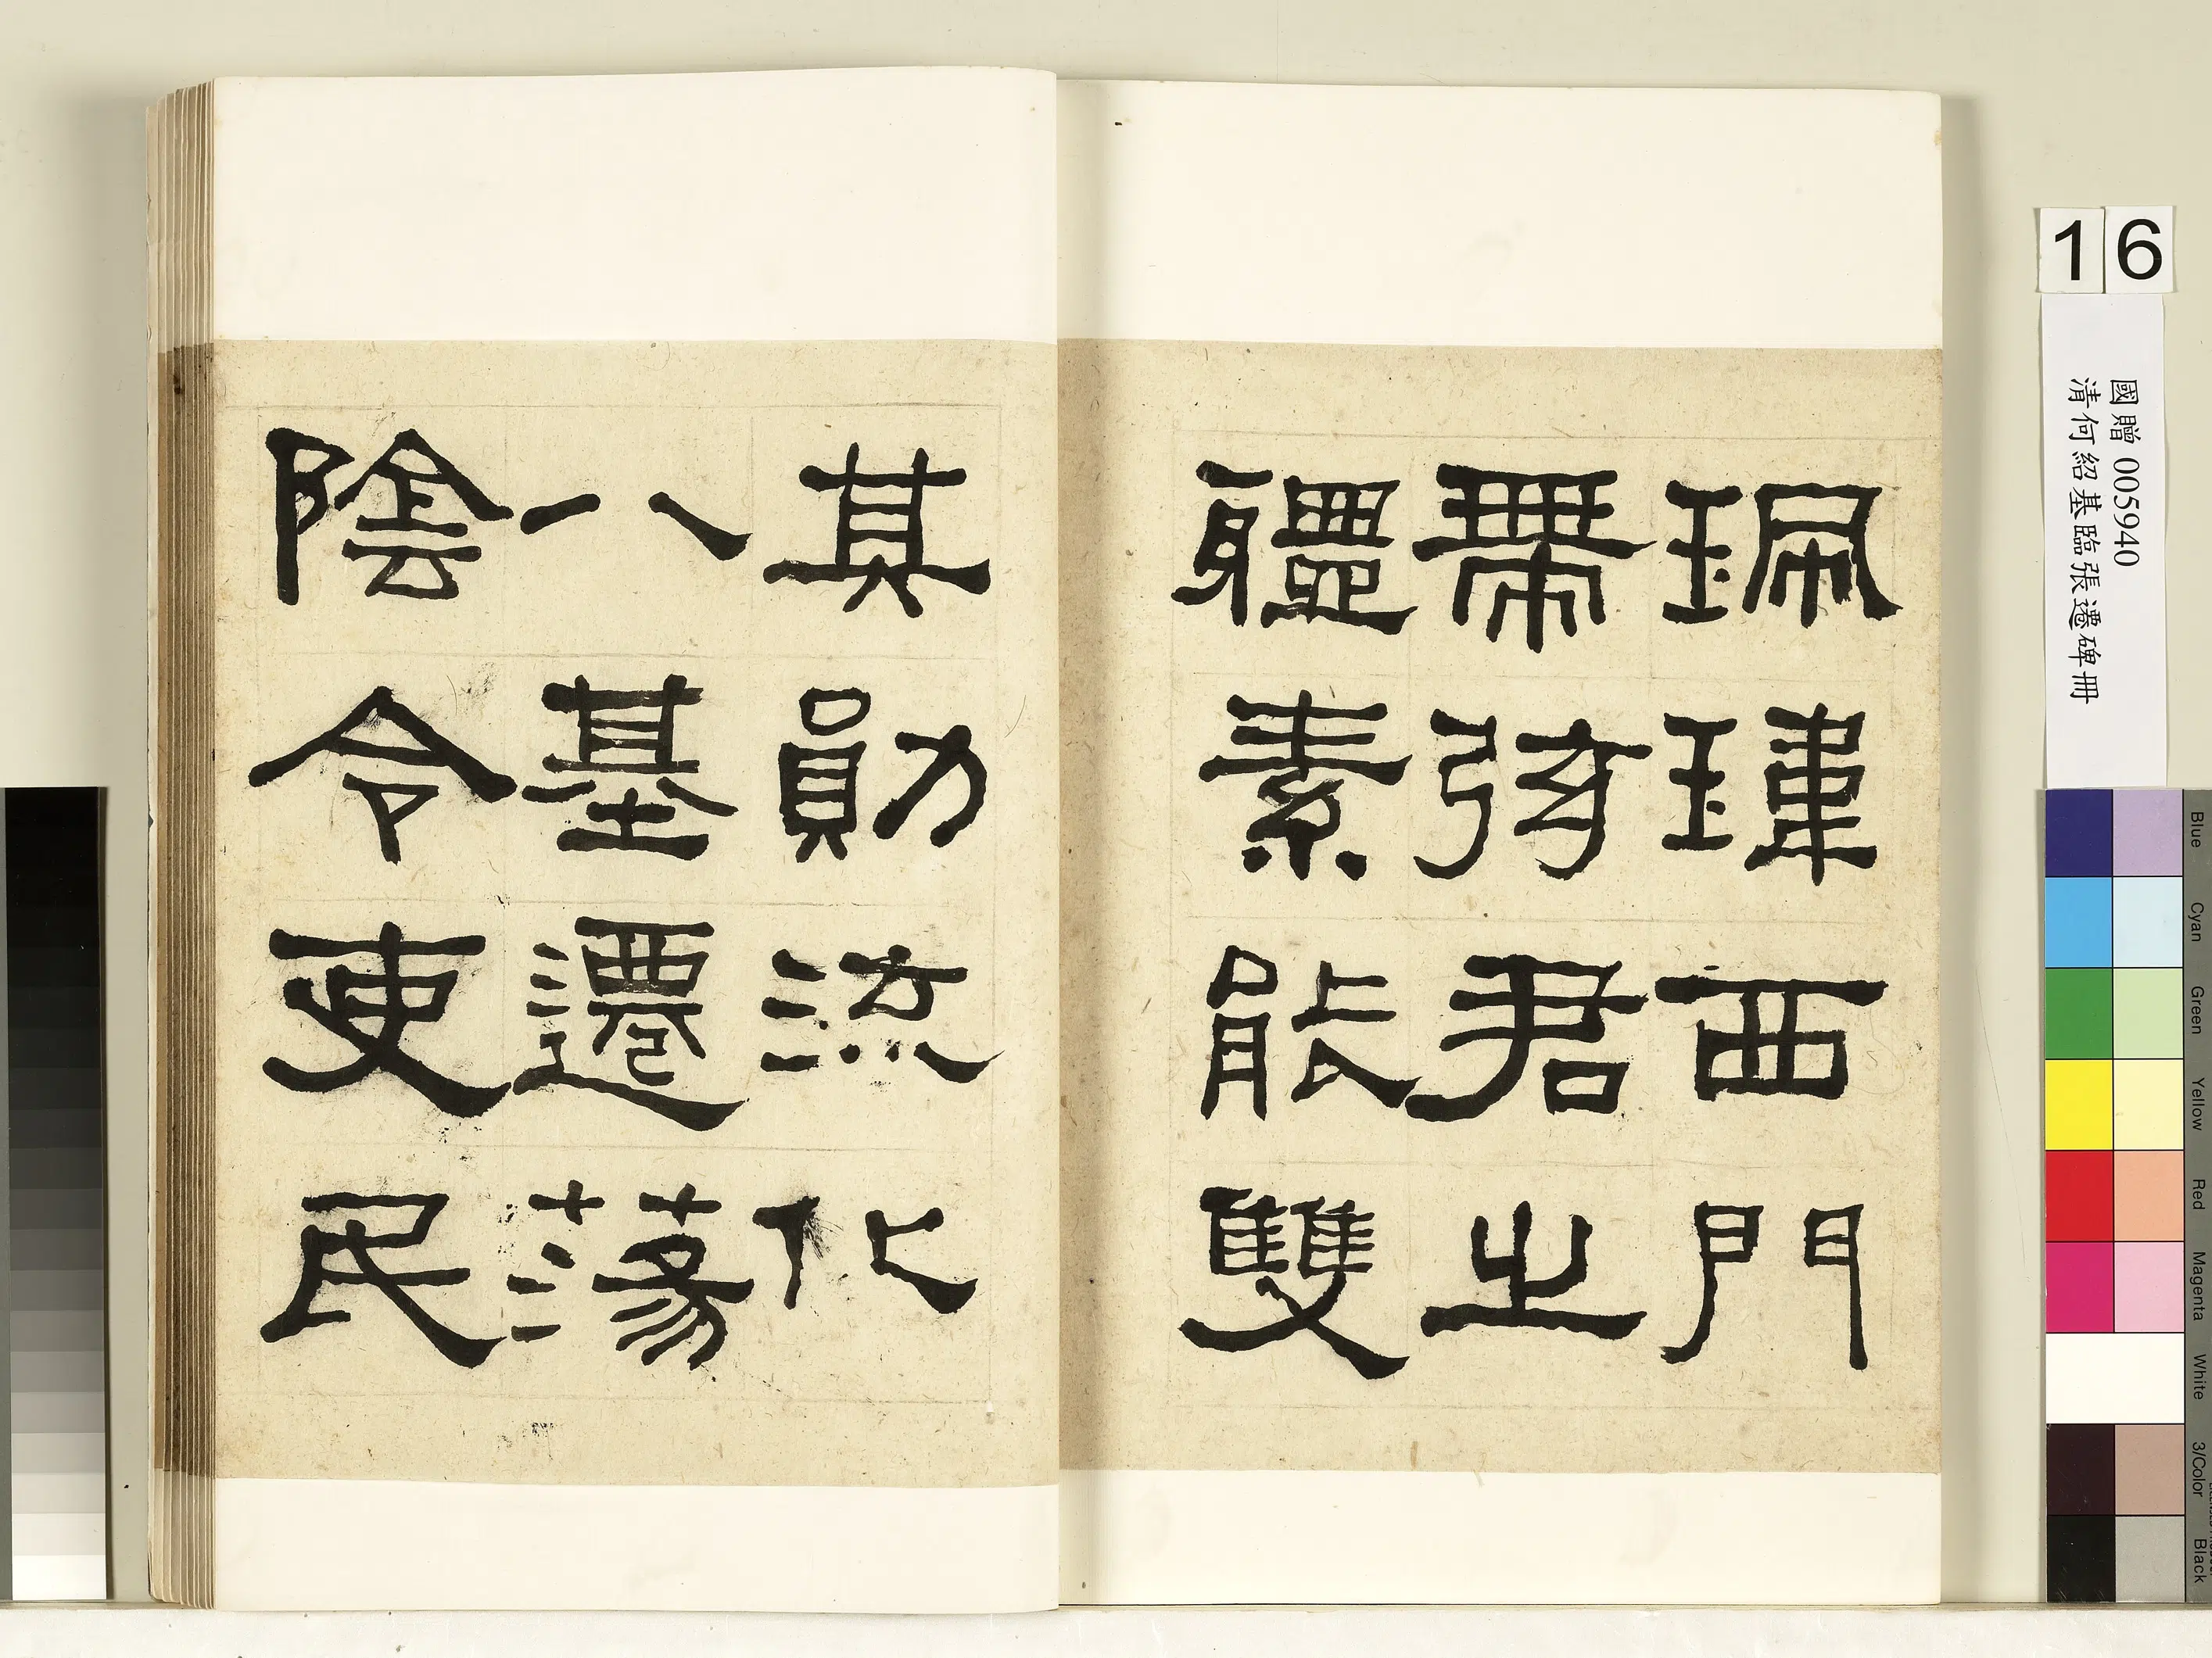 珮瑋西門
帶弦君之
軆素能雙
其勛流化
八基遷蕩
陰令吏民
16
國贈 005940
清何紹基臨張遷碑冊
Blue
Cyan
Green
Yellow
Red
Magenta
White
3/Color
Black